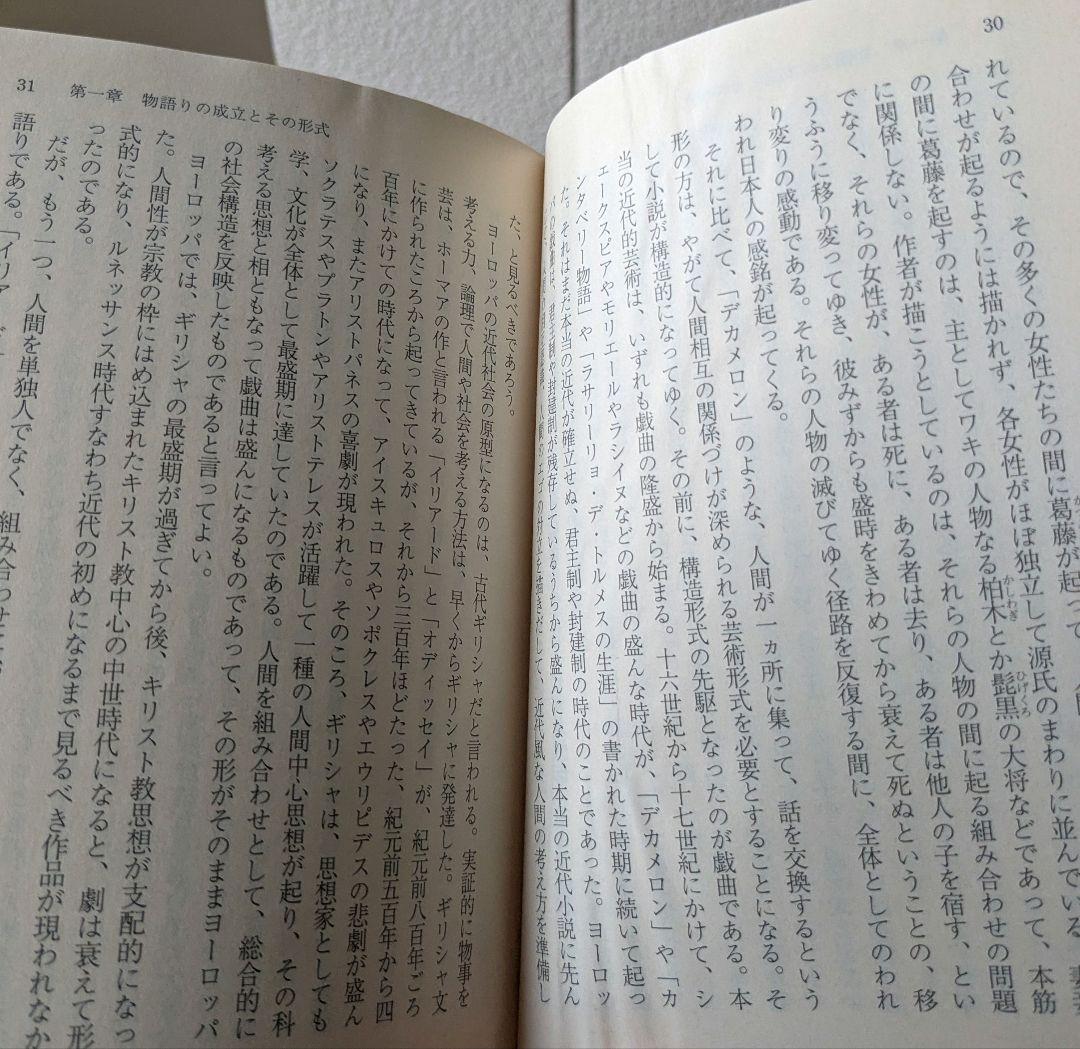 30
れているので、その多くの女性たちの間に葛藤が起って
合わせが起るようには描かれず、各女性がほぼ独立して源氏のまわりに並んでいる。
の間に葛藤を起すのは、主としてワキの人物なる柏木とか髭黒の大将などであって、本筋
に関係しない。作者が描こうとしているのは、それらの人物の間に起る組み合わせの問題
でなく、それらの女性が、ある者は死に、ある者は去り、ある者は他人の子を宿す、とい
うふうに移り変ってゆき、彼みずからも盛時をきわめてから衰えて死ぬということの、移
り変りの感動である。それらの人物の滅びてゆく径路を反復する間に、全体としてのわれ
われ日本人の感銘が起ってくる。
それに比べて、「デカメロン」のような、人間が一ヵ所に集って、話を交換するという
形の方は、やがて人間相互の関係づけが深められる芸術形式を必要とすることになる。そ
して小説が構造的になってゆく。その前に、構造形式の先駆となったのが戯曲である。本
当の近代的芸術は、いずれも戯曲の隆盛から始まる。十六世紀から十七世紀にかけて、シ
ェークスピアやモリエールやラシイヌなどの戯曲の盛んな時代が、「デカメロン」や「カ
ンタベリー物語」や「ラサリーリョ・デ・トルメスの生涯」の書かれた時期に続いて起っ
た。それはまだ本当の近代が確立せぬ、君主制や封建制の時代のことであった。ヨーロッ
パの戯曲は、君主制や封建制が残存しているうちから盛んになり、本当の近代小説に先ん
の対立を描きだして、近代風な人間の考え方を準備し
31
第一章 物語りの成立とその形式
た、と見るべきであろう。
ヨーロッパの近代社会の原型になるのは、古代ギリシャだと言われる。実証的に物事を
考える力、論理で人間や社会を考える方法は、早くからギリシャに発達した。ギリシャ文
芸は、ホーマアの作と言われる「イリアード」と「オディッセイ」が、紀元前八百年ごろ
に作られたころから起ってきているが、それから三百年ほどたった、紀元前五百年から四
百年にかけての時代になって、アイスキュロスやソポクレスやエウリピデスの悲劇が盛ん
になり、またアリストパネスの喜劇が現われた。そのころ、ギリシャは、思想家としても
ソクラテスやプラトンやアリストテレスが活躍して一種の人間中心思想が起り、その科
学、文化が全体として最盛期に達していたのである。人間を組み合わせとして、総合的に
考える思想と相ともなって戯曲は盛んになるものであって、その形がそのままヨーロッパ
の社会構造を反映したものであると言ってよい。
ヨーロッパでは、ギリシャの最盛期が過ぎてから後、キリスト教思想が支配的になっ
た。人間性が宗教の枠にはめ込まれたキリスト教中心の中世時代になると、劇は衰えて形
式的になり、ルネッサンス時代すなわち近代の初めになるまで見るべき作品が現われなか
ったのである。
だが、もう一つ、人間を単独人でなく、組み合わせ
語りである。「イリア